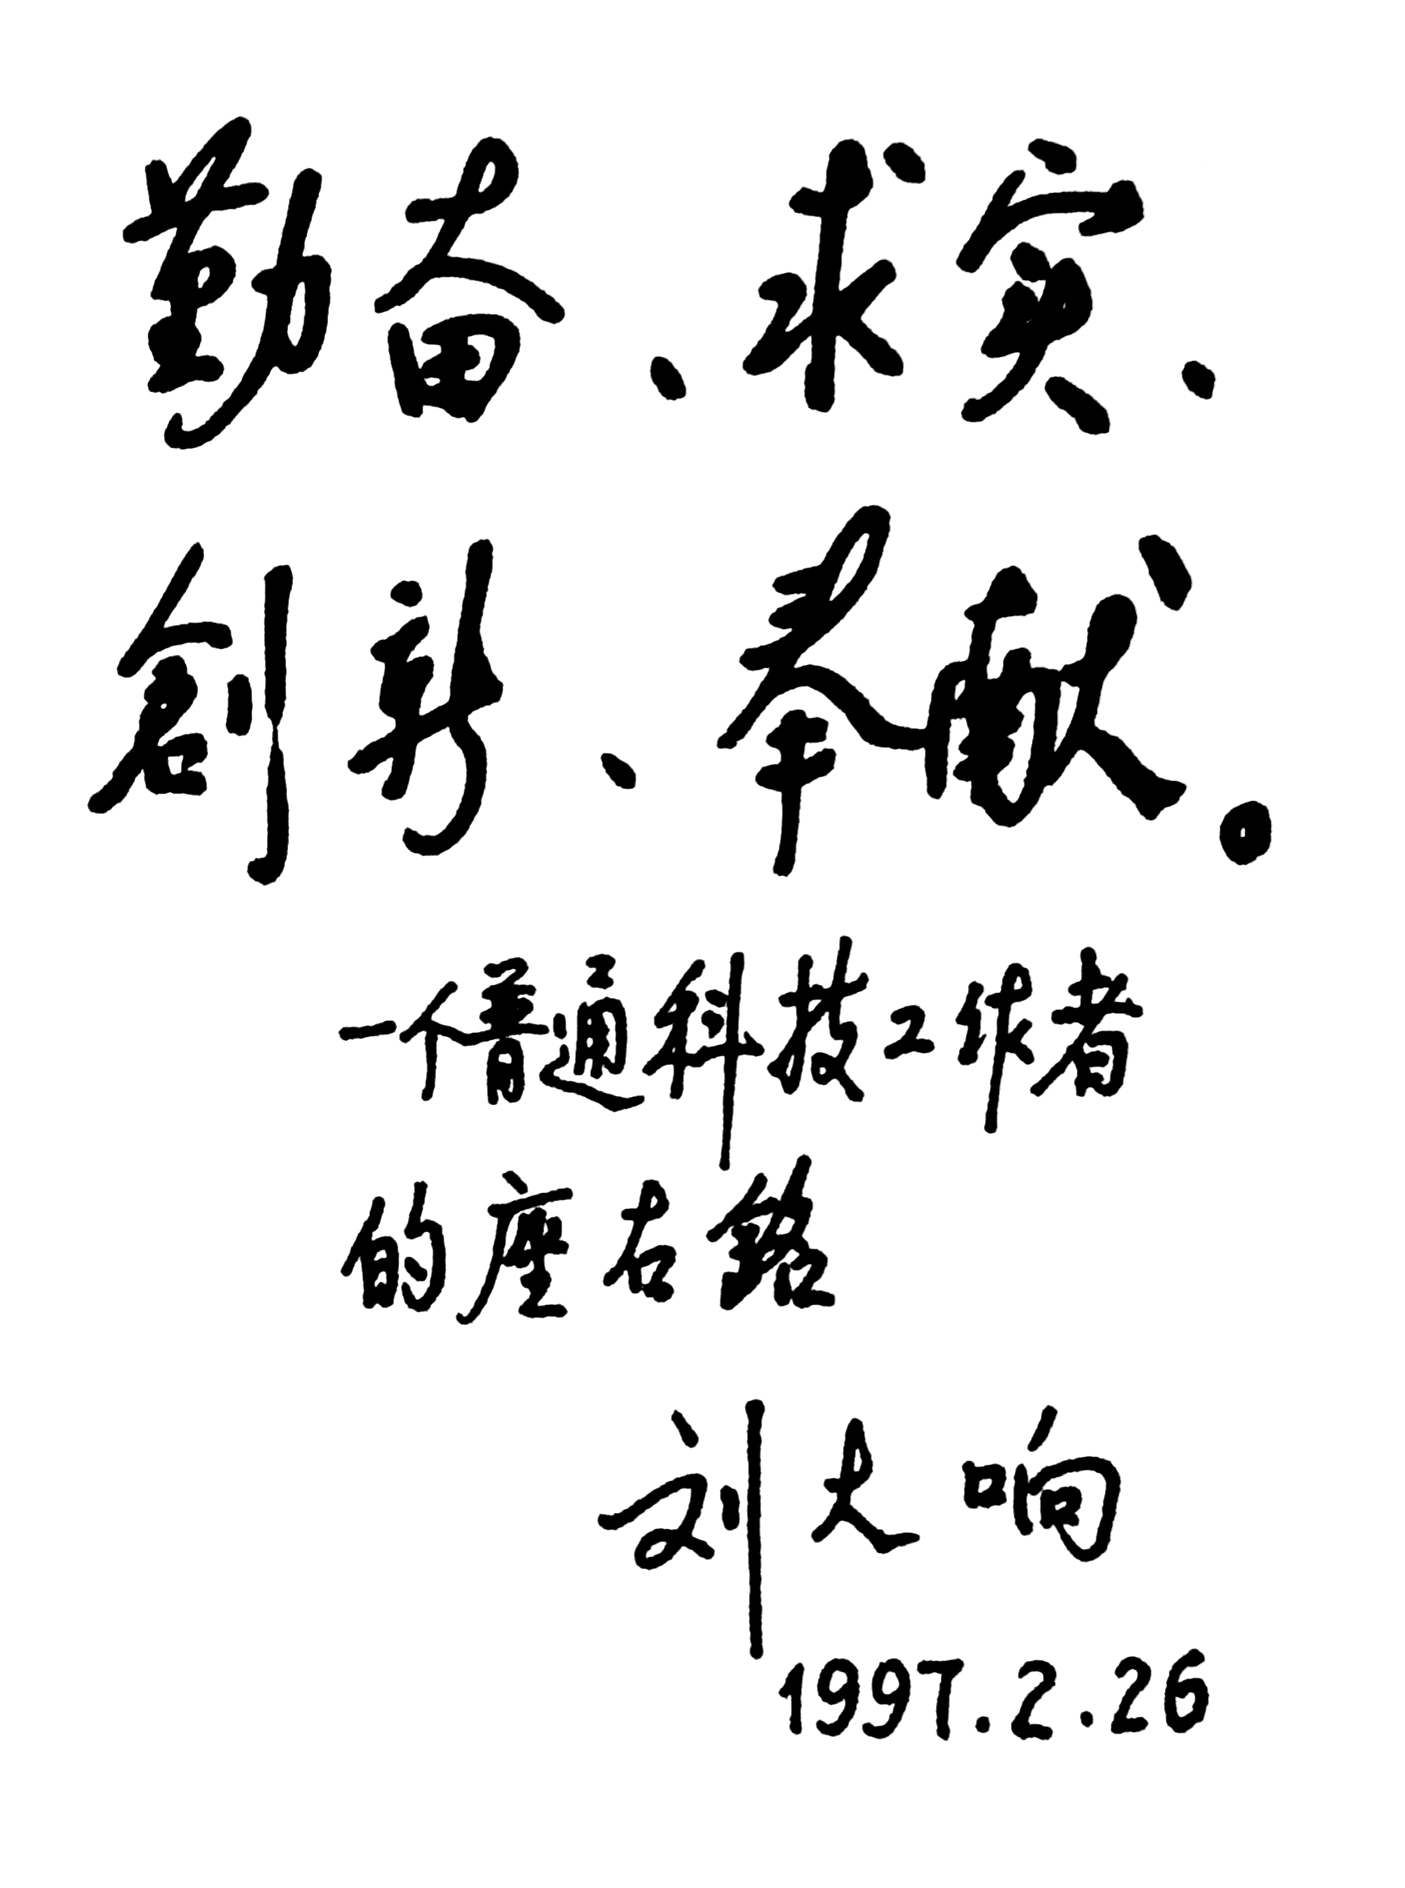 勤奋、求实、
創新、奉献。
一个普通科技工作者
的座右銘
刘大响
1997.2.26